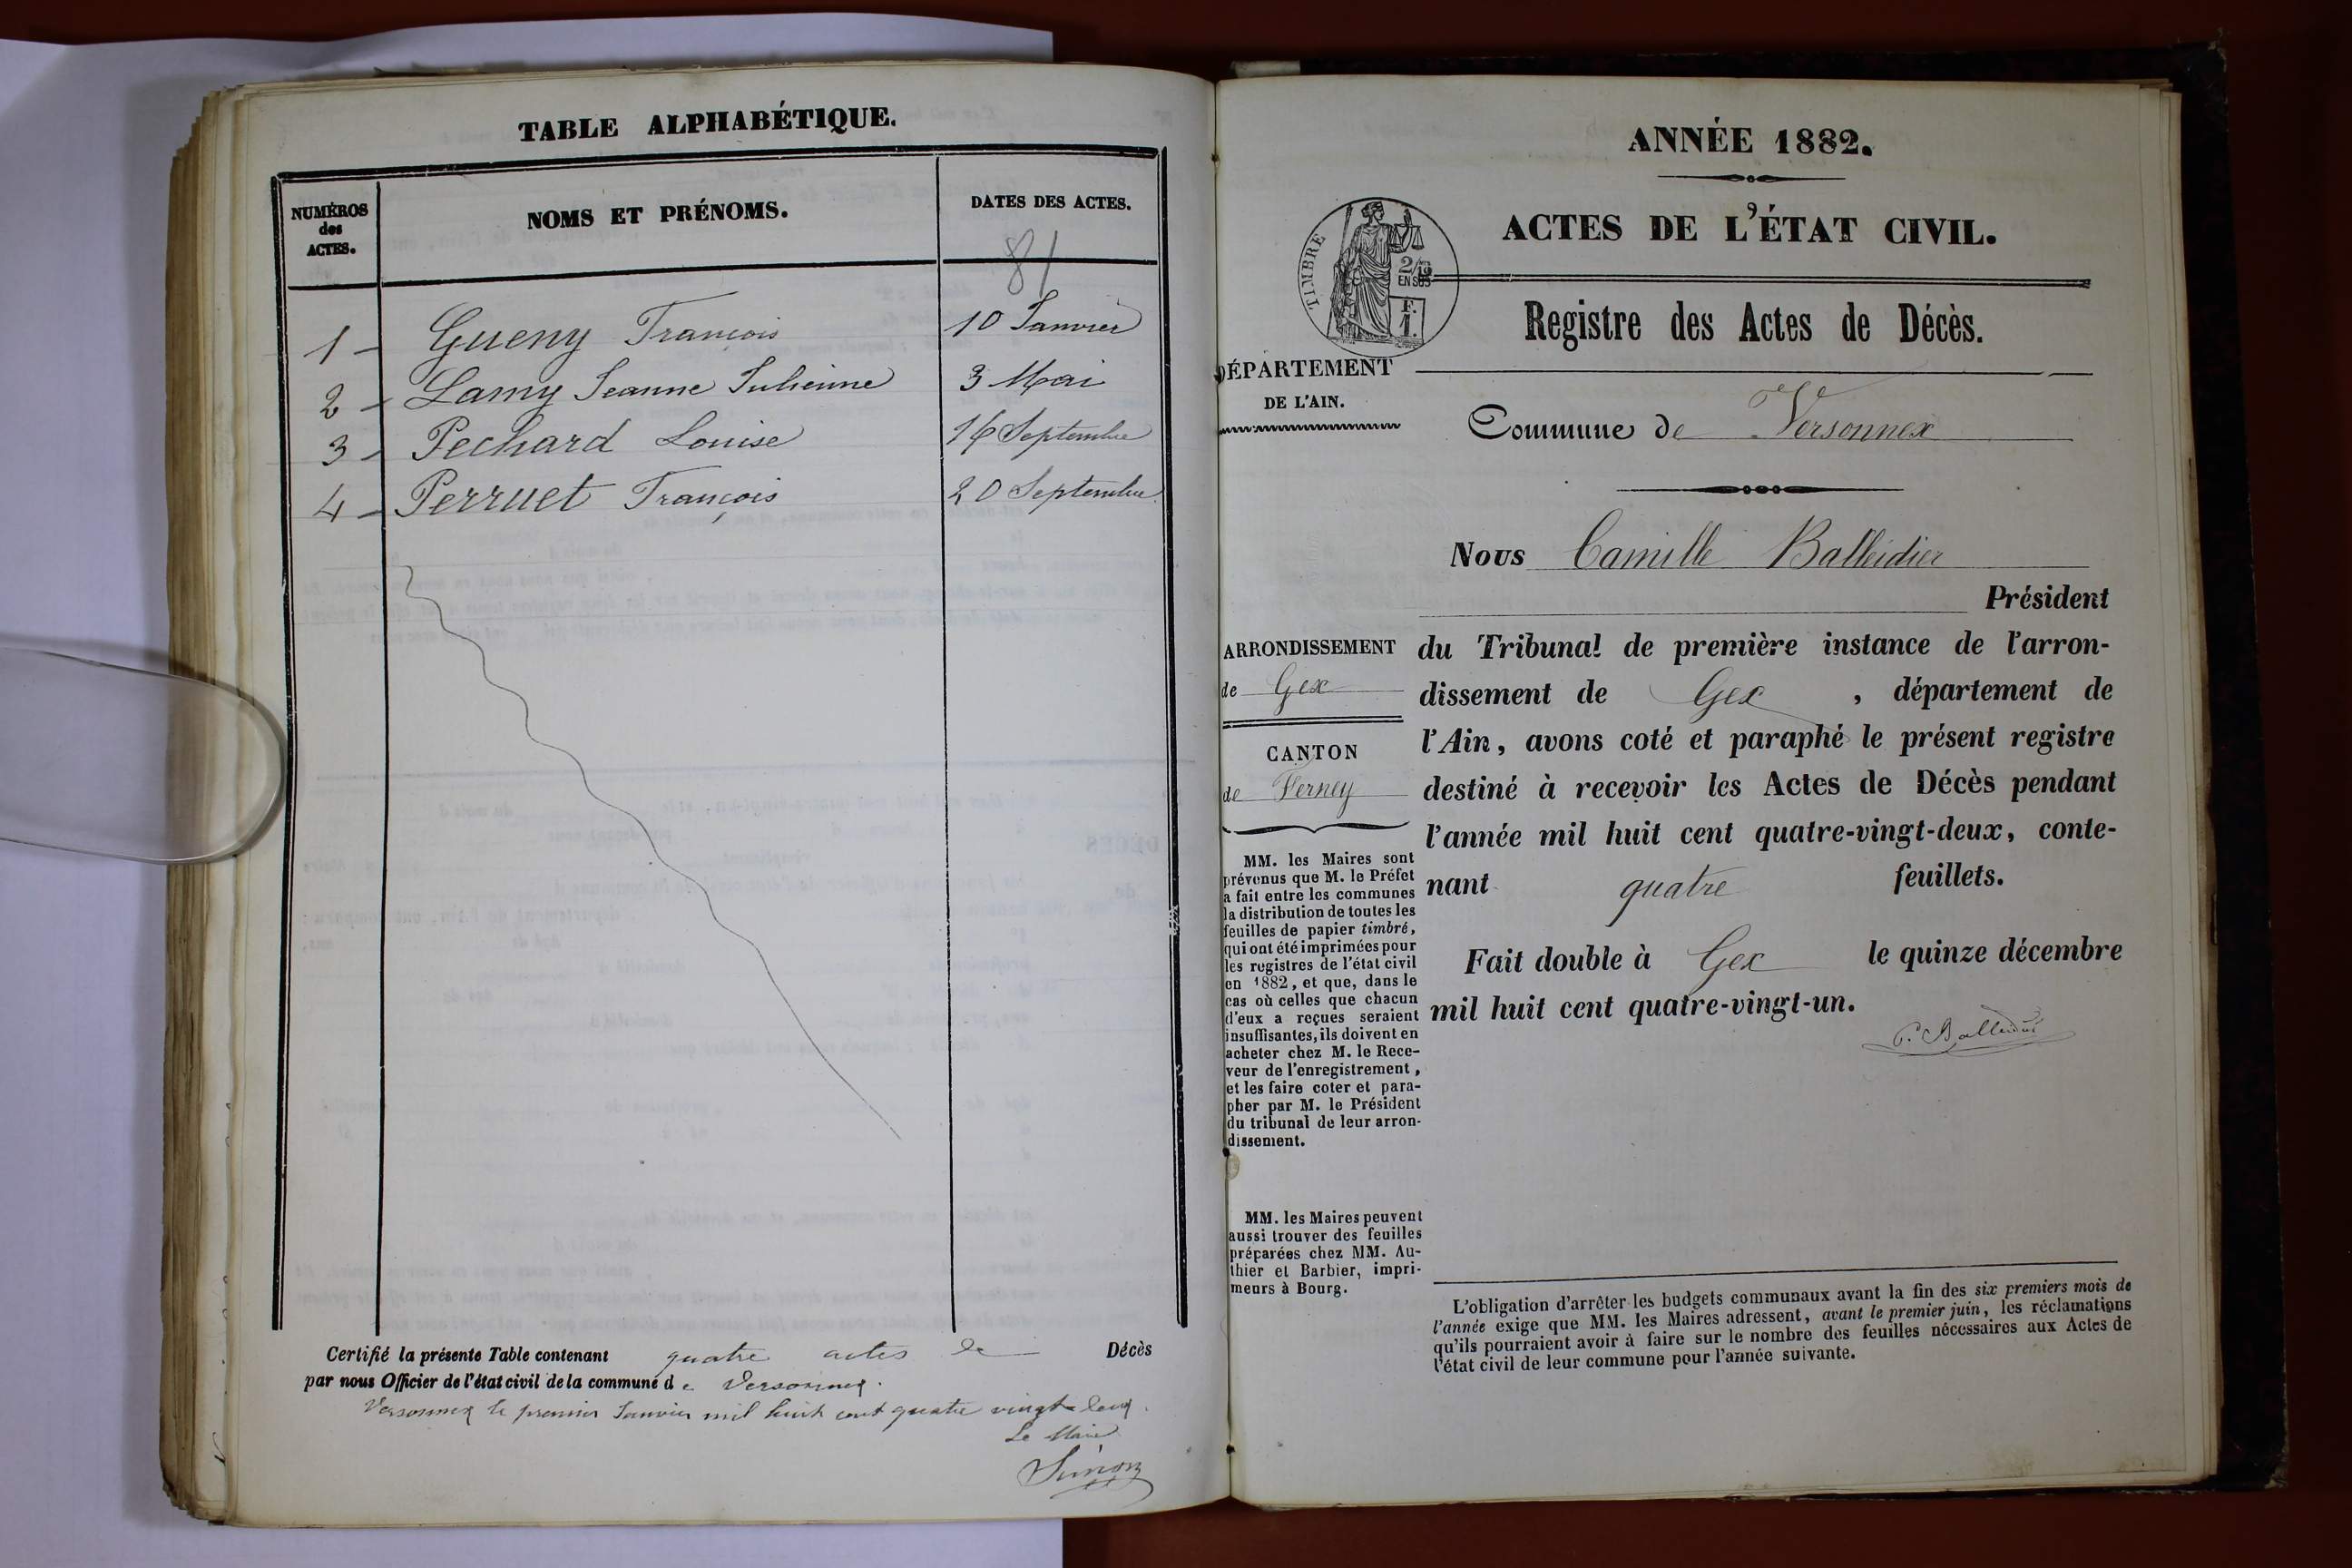 TABLE ALPHABÉTIQUE.
NUMÉROS
des
ACTES.
NOMS ET PRÉNOMS.
DATES DES ACTES.
81
1 - Gueny François 10 Janvier
2 - Lamy Jeanne Julienne 3 Mai
3 - Pechard Louise 16 Septembre
4 - Perruet François 20 Septembre
Certifié la présente Table contenant quatre actes de Décès
par nous Officier de l'état civil de la commune de Versonnex.
Versonnex le premier Janvier mil huit cent quatre vingt deux.
Le Maire
Simon
ANNÉE 1882.
ACTES DE L'ÉTAT CIVIL.
TIMBRE
2/10
EN SUS
F.
1.
Registre des Actes de Décès.
DÉPARTEMENT
DE L'AIN.
Commune de Versonnex
Nous Camille Balleidier
Président
ARRONDISSEMENT
de Gex
CANTON
de Ferney
du Tribunal de première instance de l'arron-
dissement de Gex, département de
l'Ain, avons coté et paraphé le présent registre
destiné à recevoir les Actes de Décès pendant
l'année mil huit cent quatre-vingt-deux, conte-
nant quatre feuillets.
Fait double à Gex le quinze décembre
mil huit cent quatre-vingt-un.
C. Balleidier
MM. les Maires sont
prévenus que M. le Préfet
a fait entre les communes
la distribution de toutes les
feuilles de papier timbré,
qui ont été imprimées pour
les registres de l'état civil
en 1882, et que, dans le
cas où celles que chacun
d'eux a reçues seraient
insuffisantes, ils doivent en
acheter chez M. le Rece-
veur de l'enregistrement,
et les faire coter et para-
pher par M. le Président
du tribunal de leur arron-
dissement.
MM. les Maires peuvent
aussi trouver des feuilles
préparées chez MM. Au-
thier et Barbier, impri-
meurs à Bourg.
L'obligation d'arrêter les budgets communaux avant la fin des six premiers mois de
l'année exige que MM. les Maires adressent, avant le premier juin, les réclamations
qu'ils pourraient avoir à faire sur le nombre des feuilles nécessaires aux Actes de
l'état civil de leur commune pour l'année suivante.